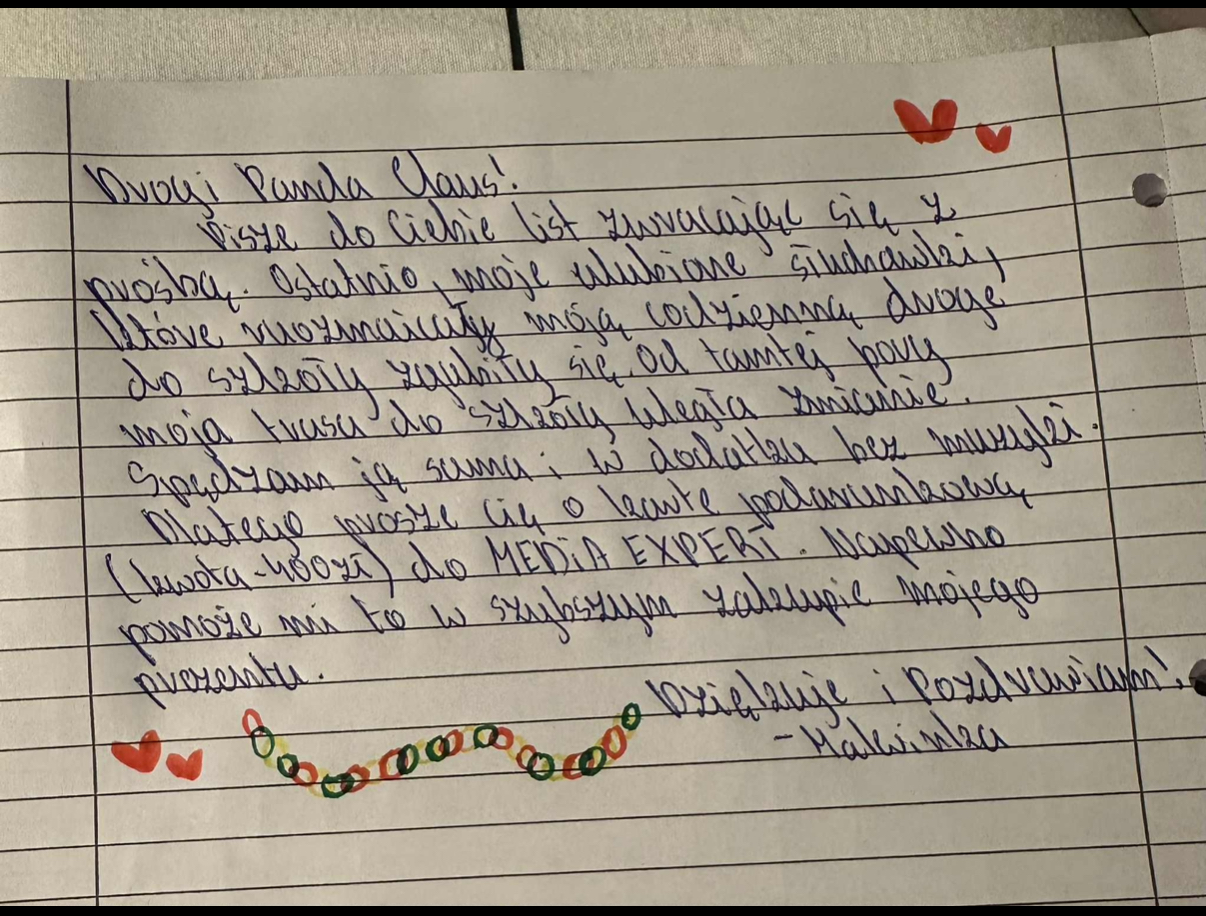 Drogi Panda Claus!
Pisze do Ciebie list zwracając się z
prośbą. Ostatnio, moje ulubione słuchawki,
które urozmaicały moją codzienną droge
do szkoły zgubiły się. Od tamtej pory
moja trasa do szkoły uległa zmianie.
Spędzam ją sama i w dodatku bez muzyki.
Dlatego prosze Cię o karte podarunkową
(kwota-400zł) do MEDiA EXPERT. Napewno
pomoże mi to w szybszym zakupie mojego
prezentu.
Dziękuje i Pozdrawiam!
-Malwinka